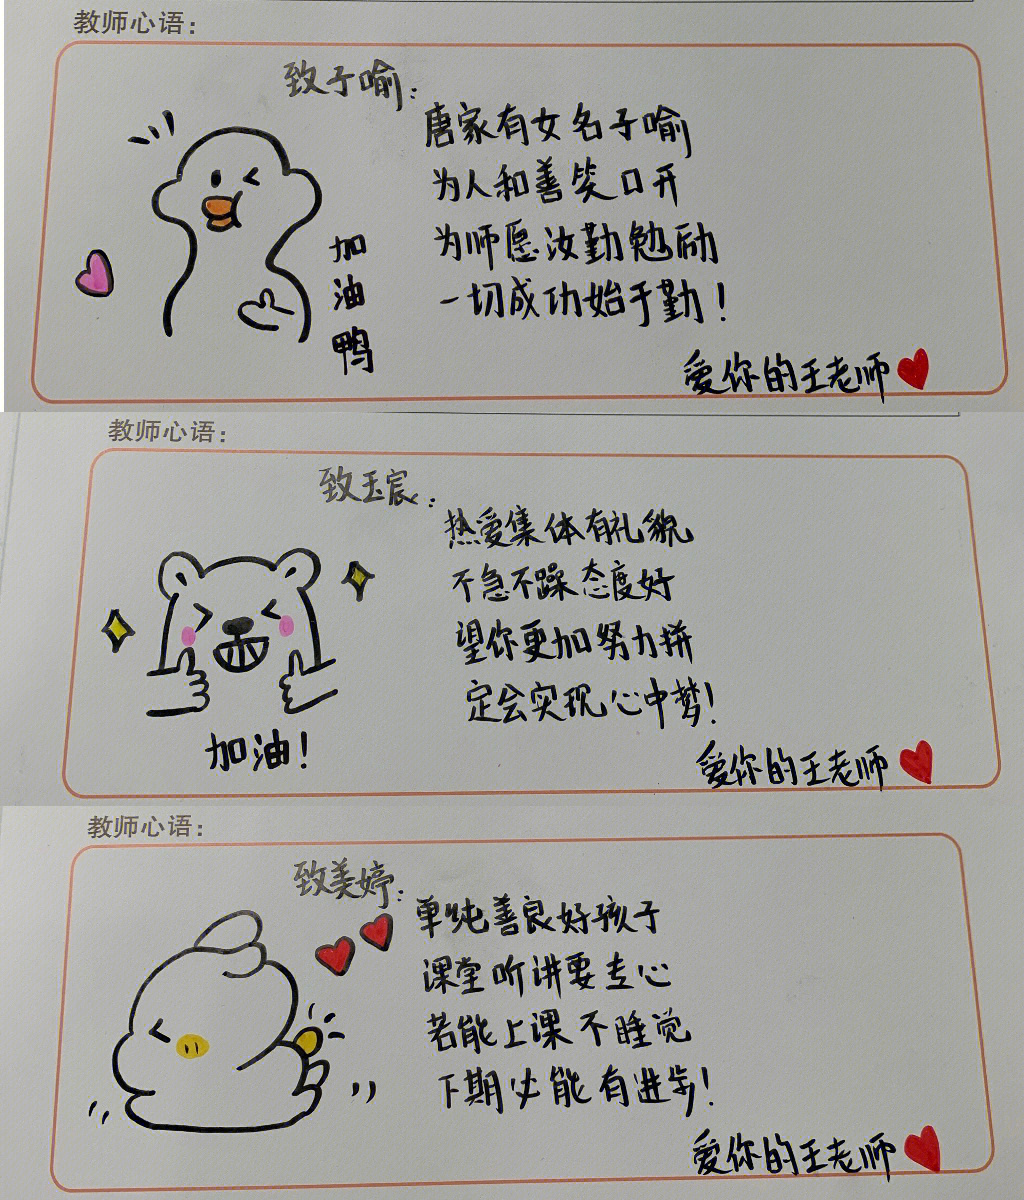 教师心语:
致子喻:
唐家有女名子喻
为人和善笑口开
为师愿汝勤勉励
一切成功始于勤!
加油鸭
爱你的王老师
教师心语:
致玉宸:
热爱集体有礼貌
不急不躁态度好
望你更加努力拼
定会实现心中梦!
加油!
爱你的王老师
教师心语:
致美婷:
单纯善良好孩子
课堂听讲要专心
若能上课不睡觉
下期必能有进步!
爱你的王老师